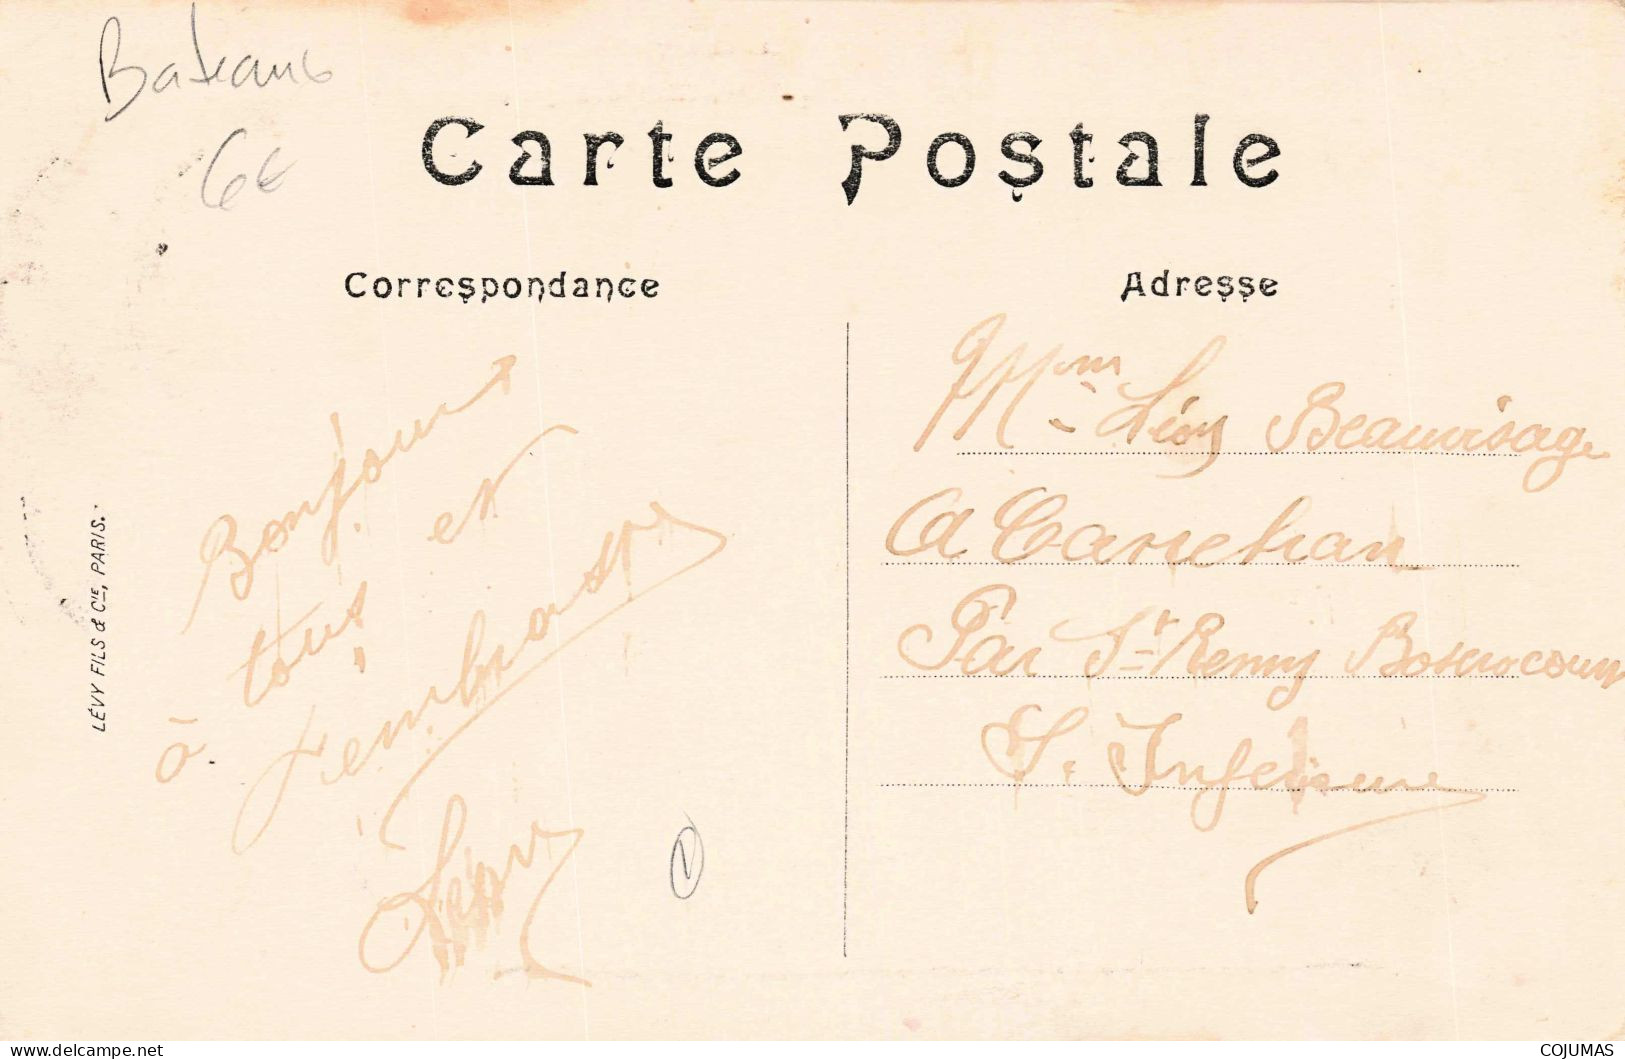 Bateaux
6€
Carte Postale
Correspondance
Adresse
Bonjour
à tous, et
embrasse
Léon
LÉVY FILS & CIE, PARIS.
Mme Léon Beauvisage
A
Par St Remy Boscrocourt
S. Inferieure
www.delcampe.net
COJUMAS